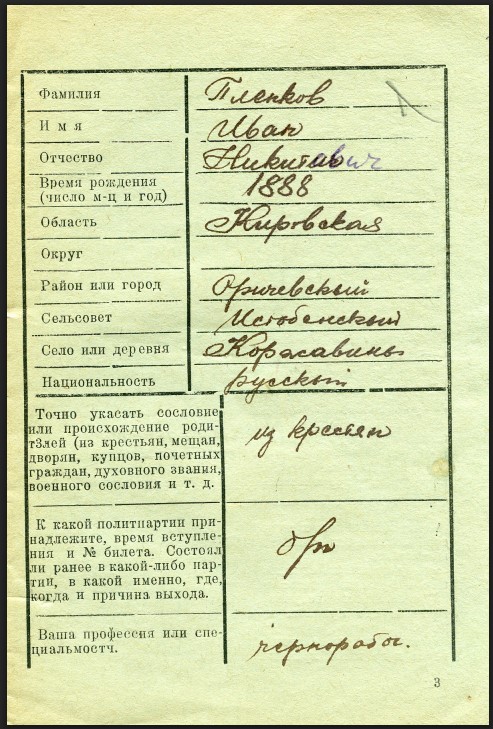 Фамилия Пленков
Имя Иван
Отчество Никитович
Время рождения
(число м-ц и год) 1888
Область Кировская
Округ
Район или город Оричевский
Сельсовет Истобенский
Село или деревня Коржавины
Национальность русский
Точно укасать сословие
или происхождение роди-
тЗлей (из крестьян, мещан,
дворян, купцов, почетных
граждан, духовного звания,
военного сословия и т. д.
из крестян
К какой политпартии при-
надлежите, время вступле-
ния и № билета. Состоял
ли ранее в какой-либо пар-
тии, в какой именно, где,
когда и причина выхода.
Ваша профессия или спе-
циальмостч.
чернорабоч.
3